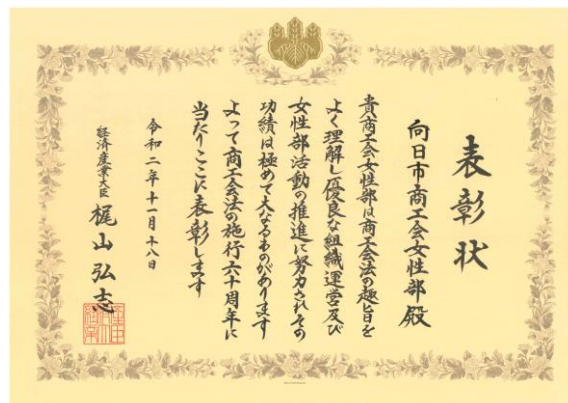 表彰状
向日市商工会女性部殿
貴商工会女性部は商工会法の趣旨を
よく理解し優良な組織運営及び
女性部活動の推進に努力されその
功績は極めて大なるものがあります
よって商工会法の施行六十周年に
当たりここに表彰します
令和二年十一月十八日
経済産業大臣 梶山弘志